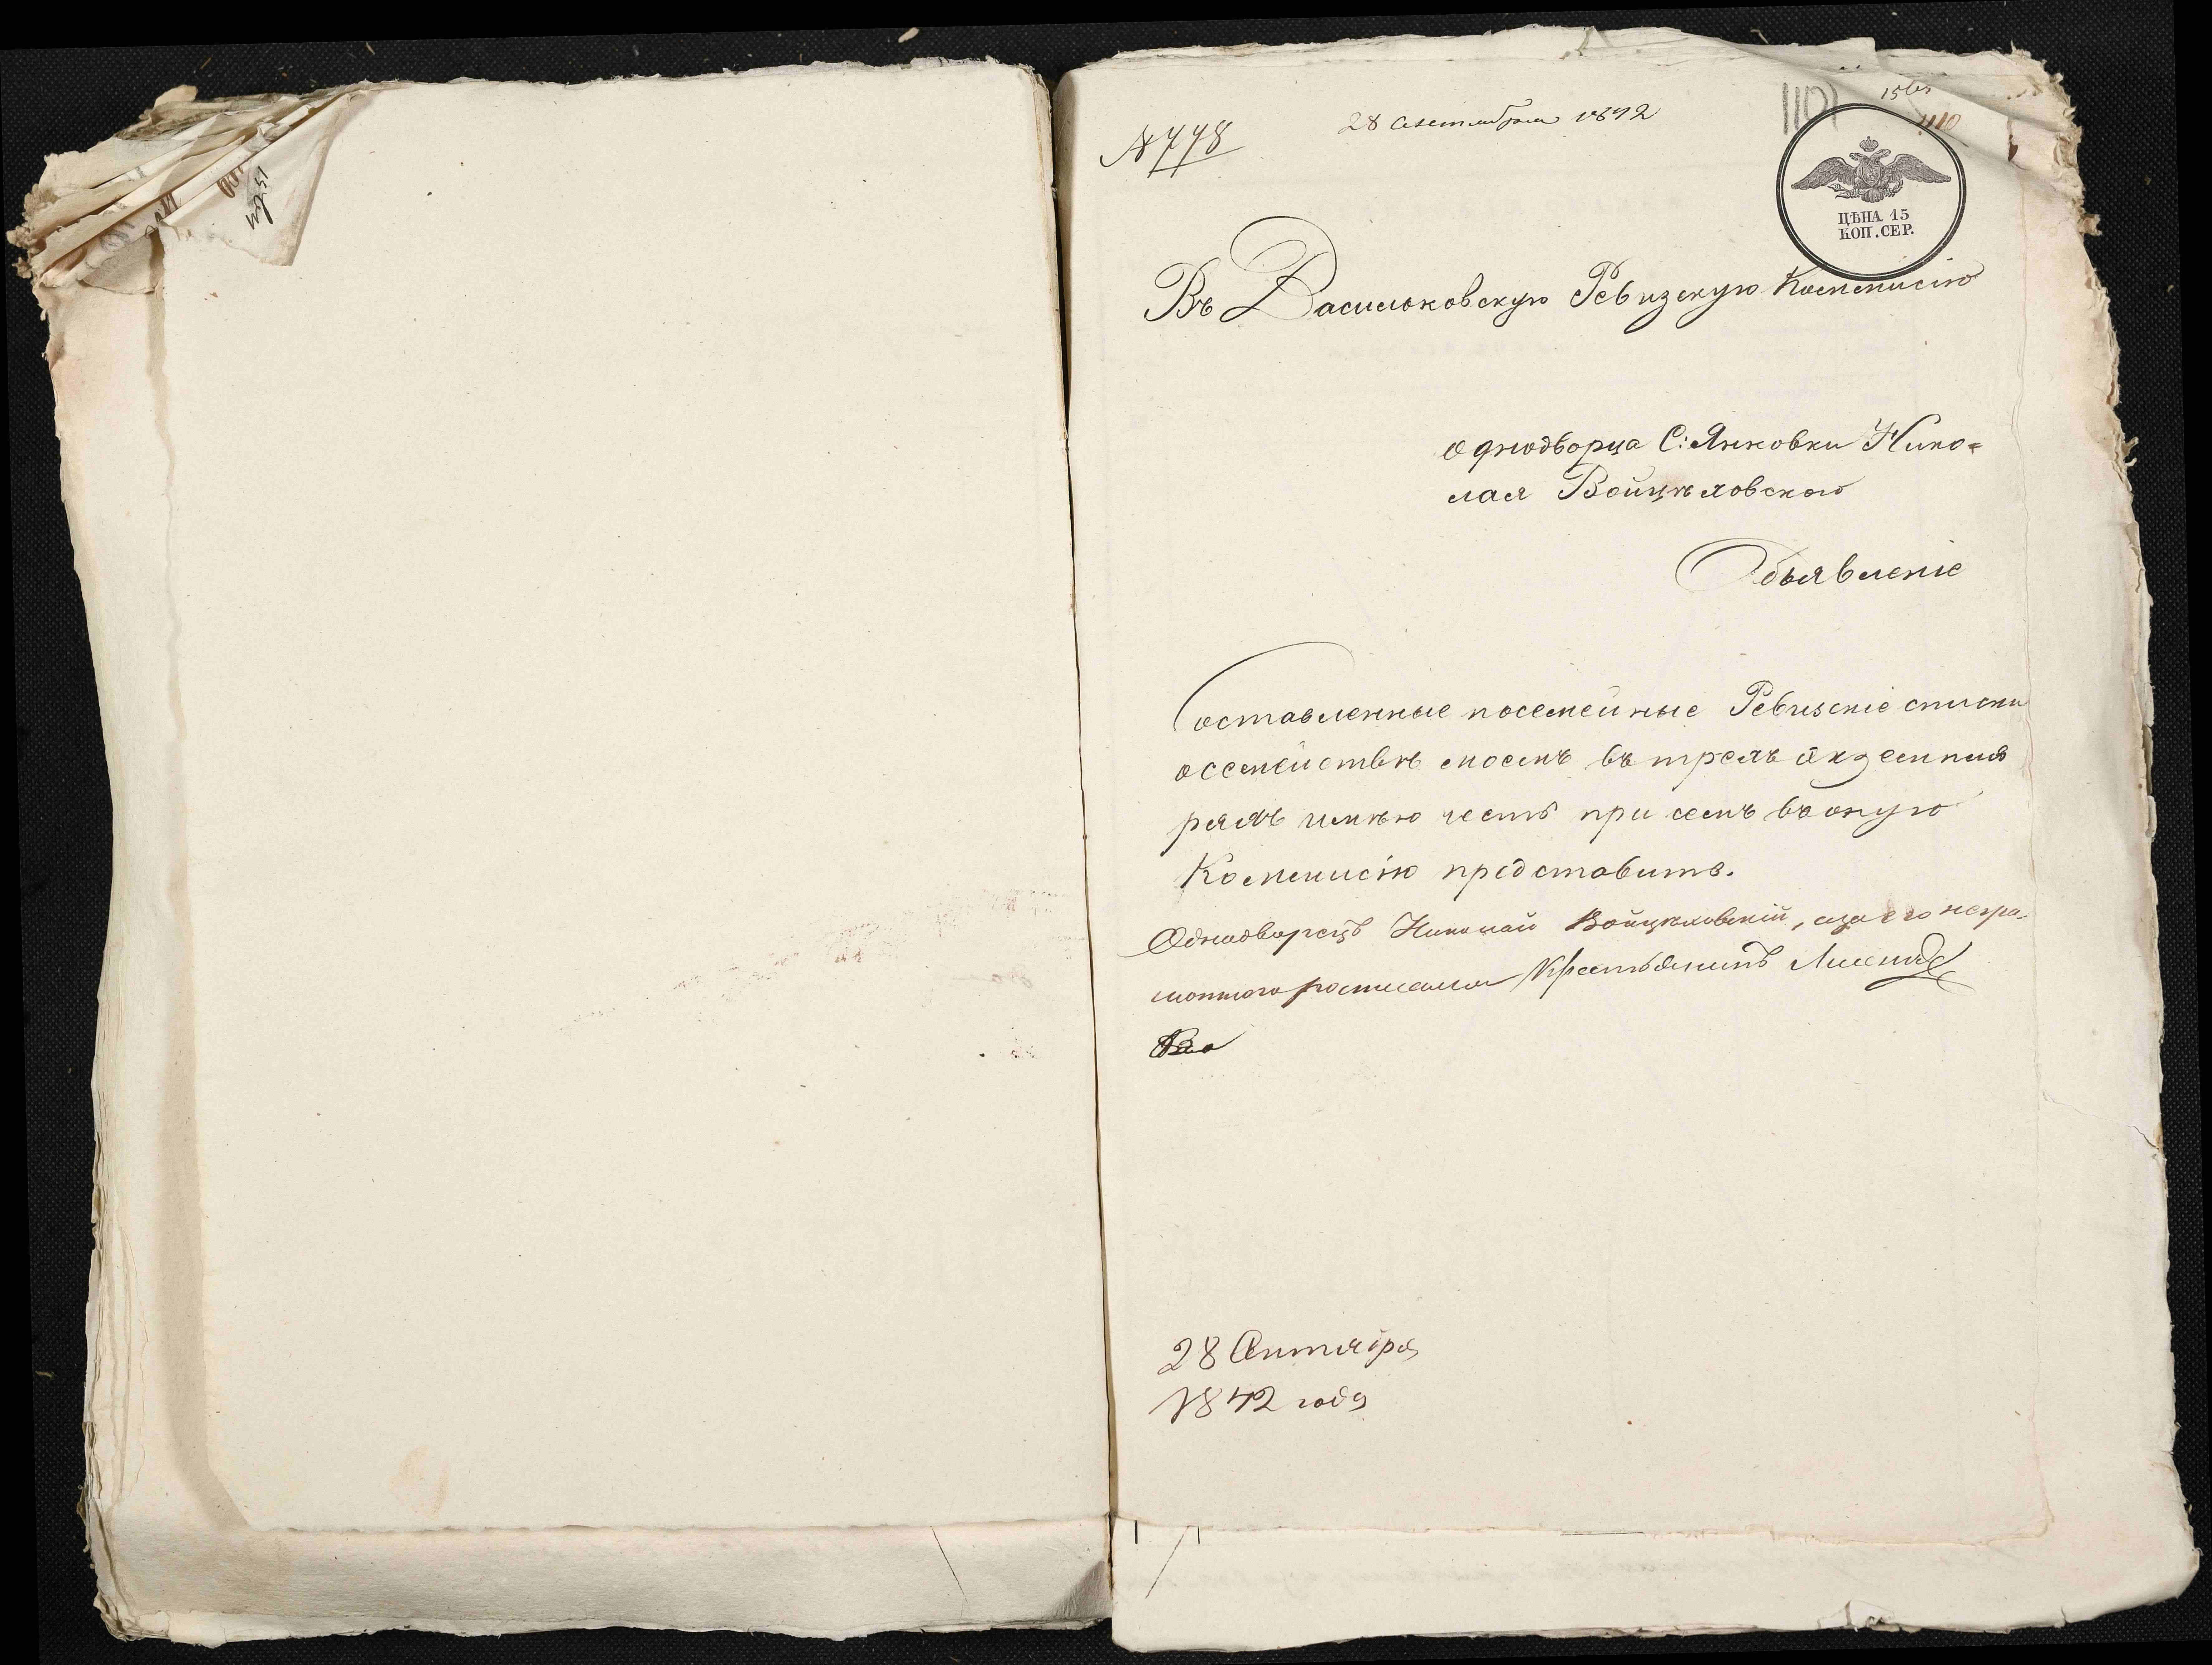 № 778
28 сентября 1842
110
ЦѢНА 15
КОП. СЕР.
Въ Васильковскую Ревизскую Коммисію
однодворца С: Янковки Нико=
лая Войцѣховского
Объявленіе
Составленные посемейные Ревизскіе списки
осемействѣ моемъ въ трехъ екземпля
рахъ имѣю честь при семъ въ оную
Коммисію представить.
Однодворецъ Николай Войцѣховскій, а за его негра-
мотного росписался Крестьянинъ
28 Сентября
1842 года